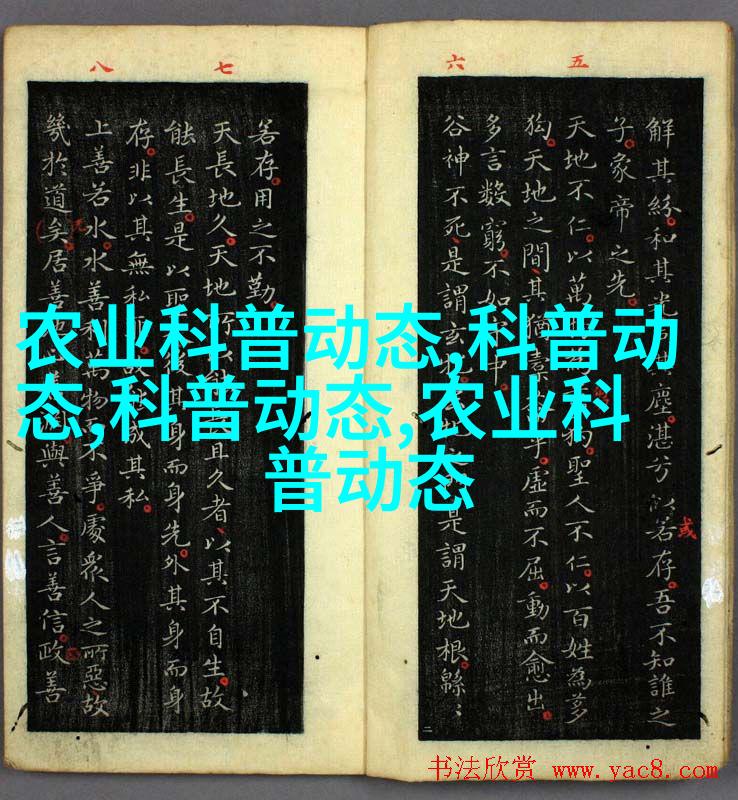 八 七 六 五
解其紛和其光塵湛兮以若存吾不知誰之
或
子象帝之先
天地不仁以萬狗聖人不仁以百姓為芻
狗天地之間其猶橐乎虛而不屈動而愈出
多言數窮不如中
谷神不死是謂玄是謂天地根緜〻
若存用之不勤
天長地久天地所以且久者以其不自生故
能長生是以聖後其身而身先外其身而身
存非以其無私成其私
上善若水水善利萬物不爭處衆人之所惡故
幾於道矣居善淵與善人言善信政善
农业科普动态,科普动
态,科普动态,农业科
普动态
书法欣赏 www.yac8.com